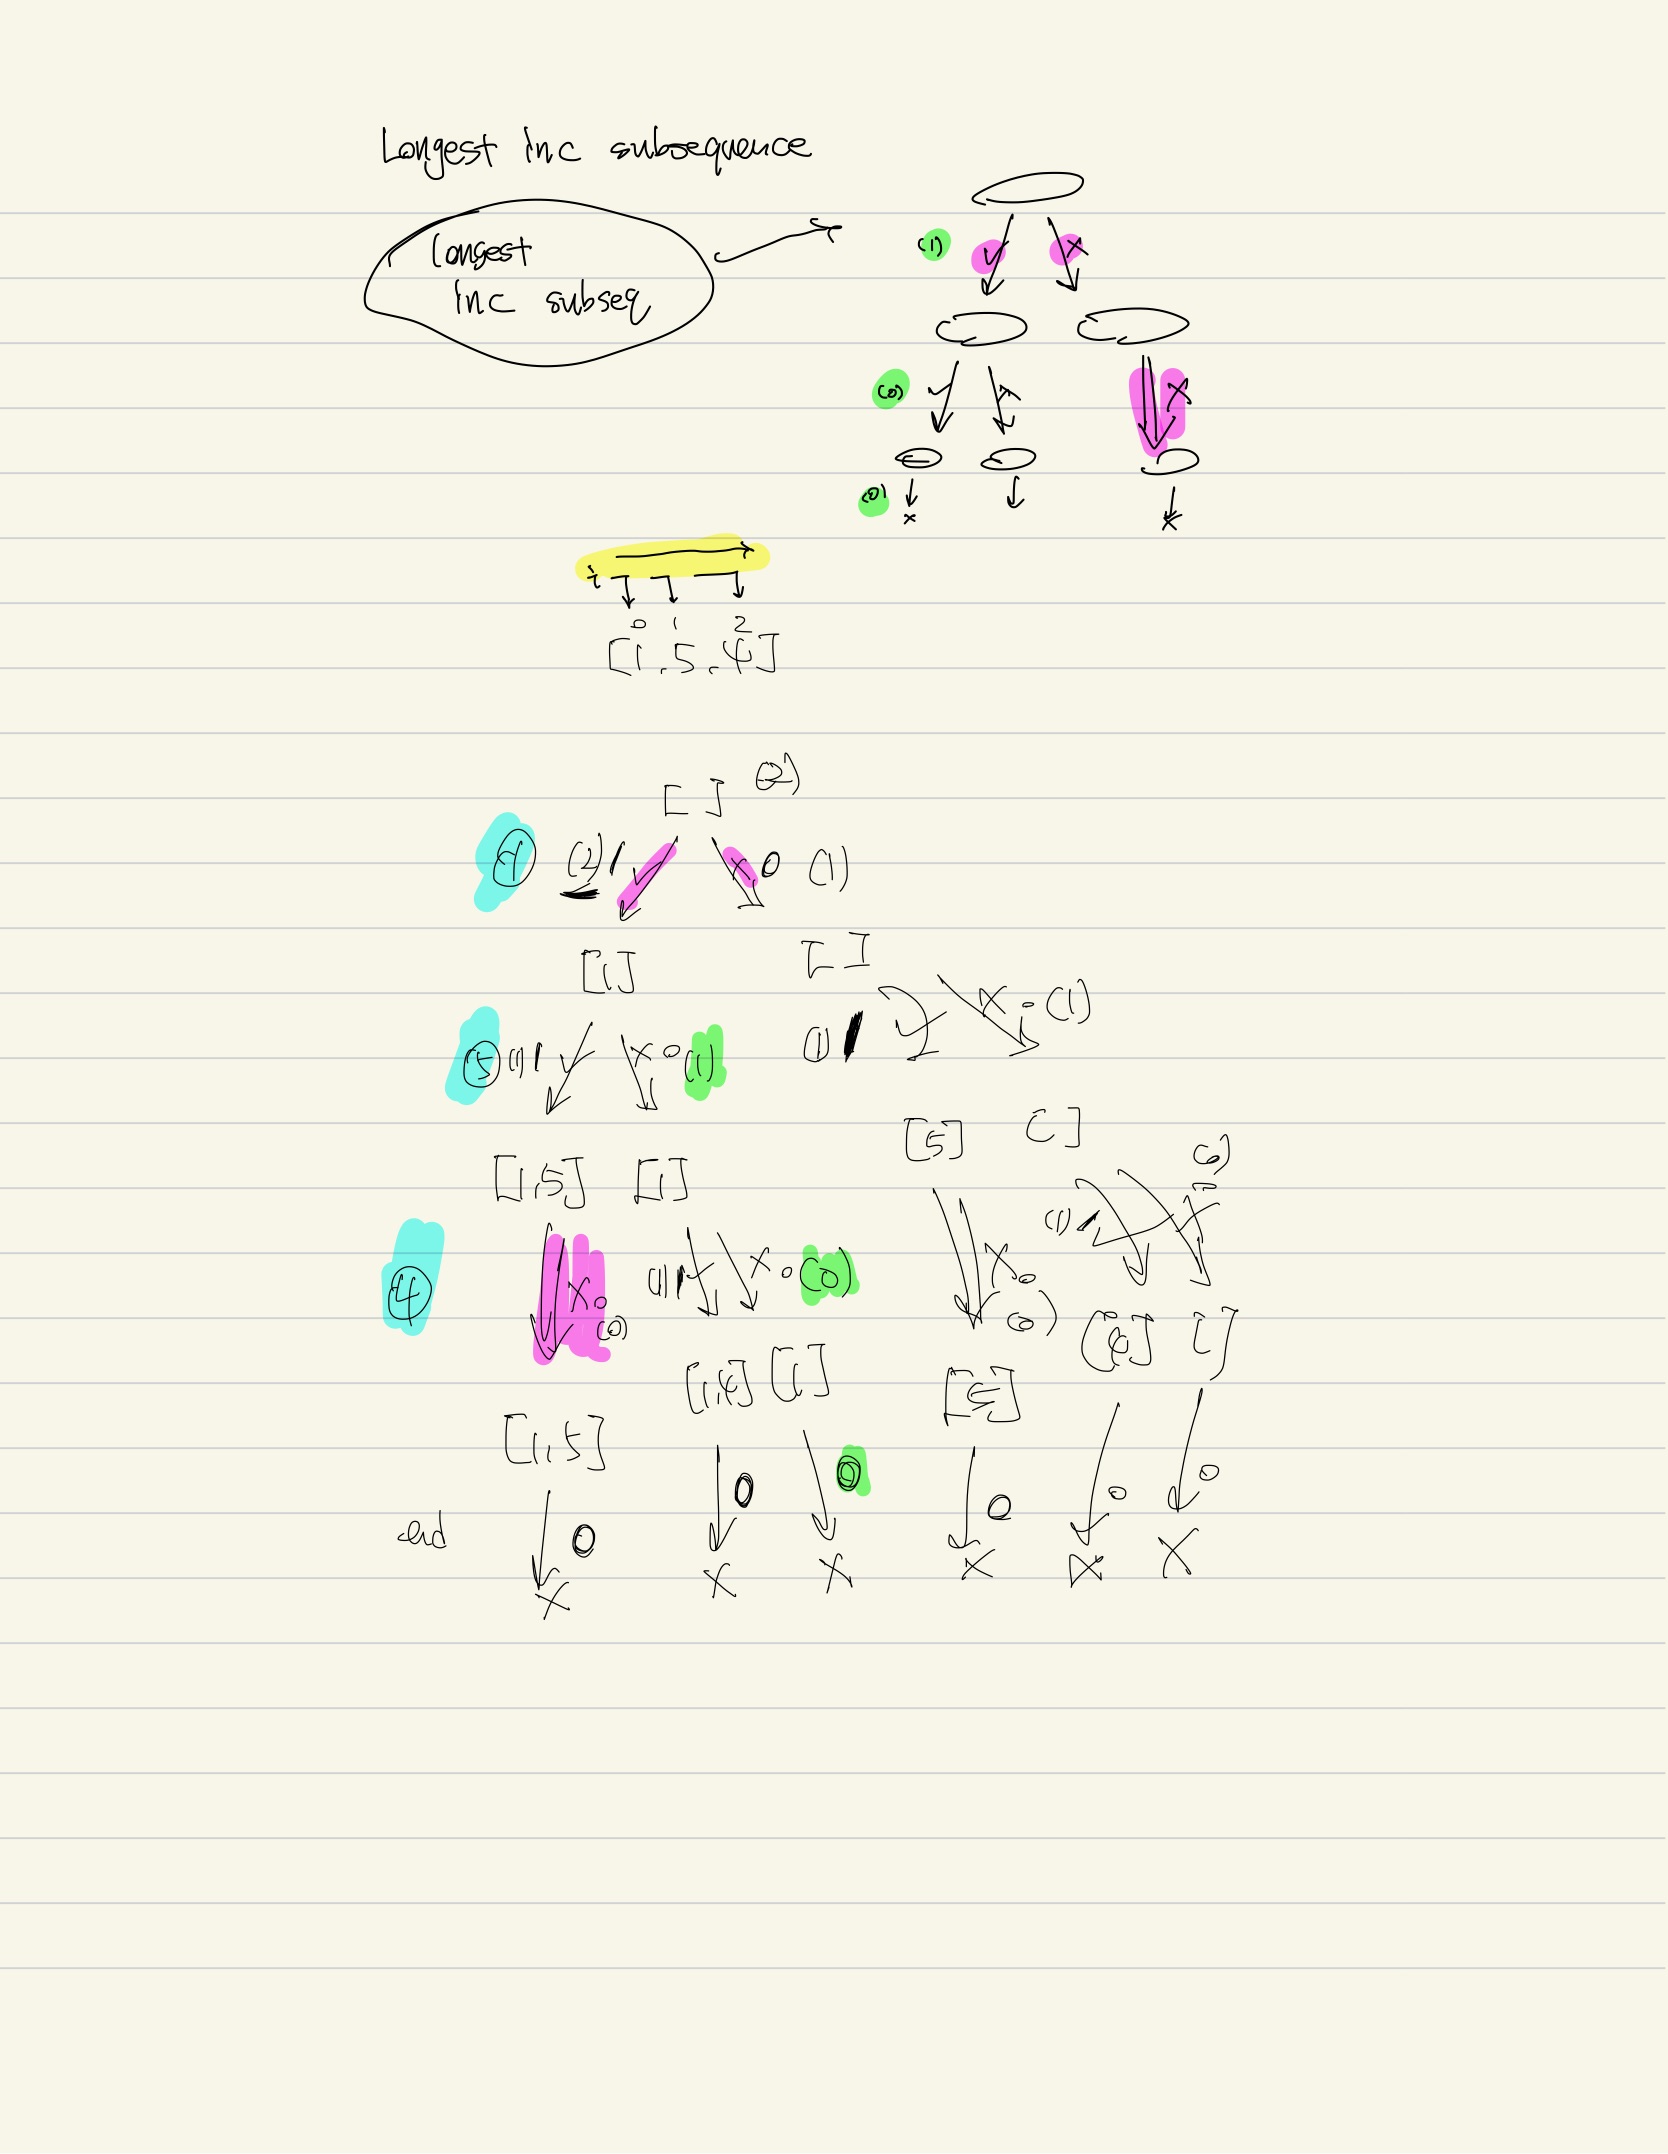 Longest inc subsequence
longest
inc subseq
(1) ✓ x
(0) ✓ x x
(0) x x
i
0 1 2
[1, 5, 4]
[ ] (2)
(2) 1 ✓ x 0 (1)
[1] [ ]
5 (1) 1 ✓ x 0 (1) (1) 1 ✓ x 0 (1)
[1,5] [1] [5] [ ]
4 x 0 (0) (1) 1 ✓ x 0 (0) x 0 (0) (1) ✓ x (0)
[1,5] [1,4] [1] [5] [4] [ ]
end 0 0 0 0 0 0
x x x x x x